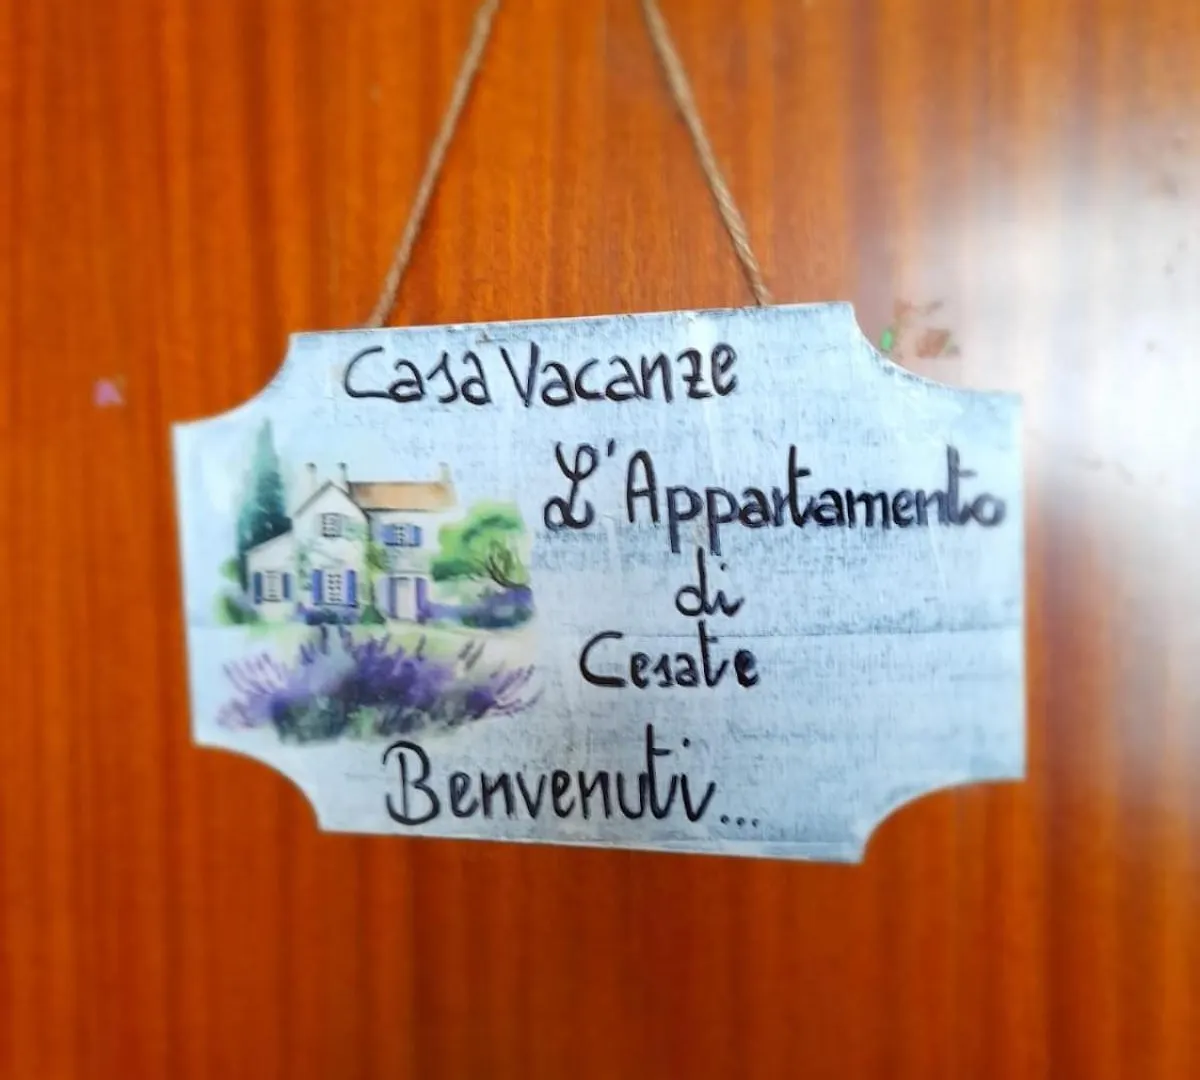 Casa Vacanze
L'Appartamento
di
Cesate
Benvenuti...